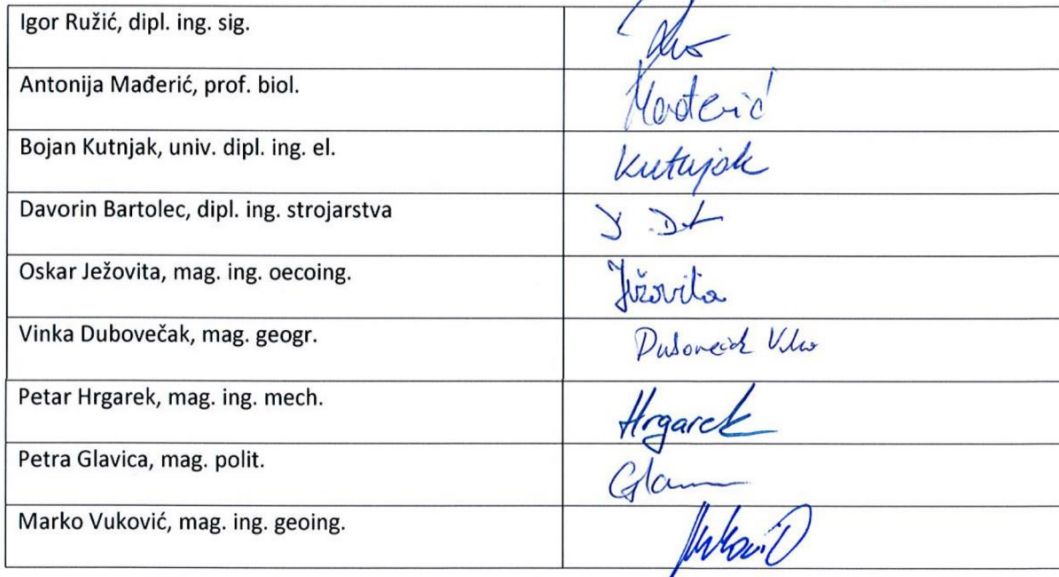 Igor Ružić, dipl. ing. sig.
Antonija Mađerić, prof. biol. Mađerić
Bojan Kutnjak, univ. dipl. ing. el. Kutnjak
Davorin Bartolec, dipl. ing. strojarstva
Oskar Ježovita, mag. ing. oecoing. Ježovita
Vinka Dubovečak, mag. geogr.
Petar Hrgarek, mag. ing. mech. Hrgarek
Petra Glavica, mag. polit.
Marko Vuković, mag. ing. geoing.